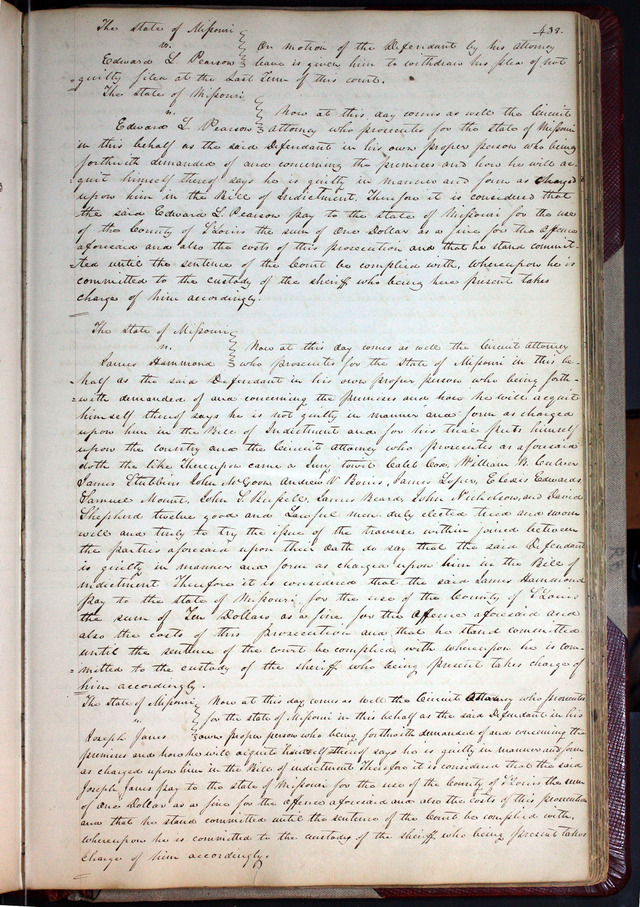 438.
The State of Missouri
vs.
On motion of the Defendant by his attorney
Edward L Pearson leave is given him to withdraw his plea of not
guilty filed at the last Term of this court.
The State of Missouri
vs.
Now at this day comes as well the Circuit
Edward L. Pearson attorney who prosecutes for the state of Missouri
in this behalf as the said Defendant in his own proper person who being
forthwith demanded of and concerning the premises and how he will ac-
quit himself thereof says he is guilty in manner and form as charged
upon him in the Bill of Indictment. Therefore it is considered that
the said Edward L. Pearson pay to the state of Missouri for the use
of the County of St Louis the sum of One Dollar as a fine for the offence
aforesaid and also the costs of this prosecution and that he stand commit-
ted until the sentence of the Court be complied with, whereupon he is
committed to the custody of the sheriff who being here present takes
charge of him accordingly.
The State of Missouri
vs.
Now at this day comes as well the Circuit attorney
James Hammond who prosecutes for the State of Missouri in this be-
half as the said Defendant in his own proper person who being forth-
with demanded of and concerning the premises and how he will acquit
himself thereof says he is not guilty in manner and form as charged
upon him in the Bill of Indictment and for his trial puts himself
upon the country and the Circuit attorney who prosecutes as aforesaid
doth the like Thereupon came a Jury towit Caleb Cox, William B.
James Stubbins John McGoon Andrew W James Edwards
Samuel Mount, John S. Russell, James Beard, John Nicholson, and David
Shepherd twelve good and Lawful men duly elected tried and sworn
well and truly to try the issue of the traverse within joined between
the parties aforesaid upon their Oath do say that the said Defendant
is guilty in manner and form as charged upon him in the Bill of
indictment Therefore it is considered that the said James Hammond
pay to the state of Missouri, for the use of the County of St Louis
the sum of Ten Dollars as a fine for the offence aforesaid and
also the costs of this prosecution and that he stand committed
until the sentence of the court be complied with whereupon he is com-
mitted to the custody of the sheriff who being present takes charge of
him accordingly.
The State of Missouri Now at this day comes as well the Circuit Attorney who prosecutes
vs
for the state of Missouri in this behalf as the said Defendant in his
Joseph Janes own proper person who being forthwith demanded of and concerning the
premises and how he will acquit himself thereof says he is guilty in manner and form
as charged upon him in the Bill of indictment Therefore it is considered that the said
Joseph Janes pay to the state of Missouri for the use of the County of St Louis the sum
of One Dollar as a fine for the offence aforesaid and also the costs of this prosecution
and that he stand committed until the sentence of the Court be complied with,
whereupon he is committed to the custody of the sheriff who being present takes
charge of him accordingly.